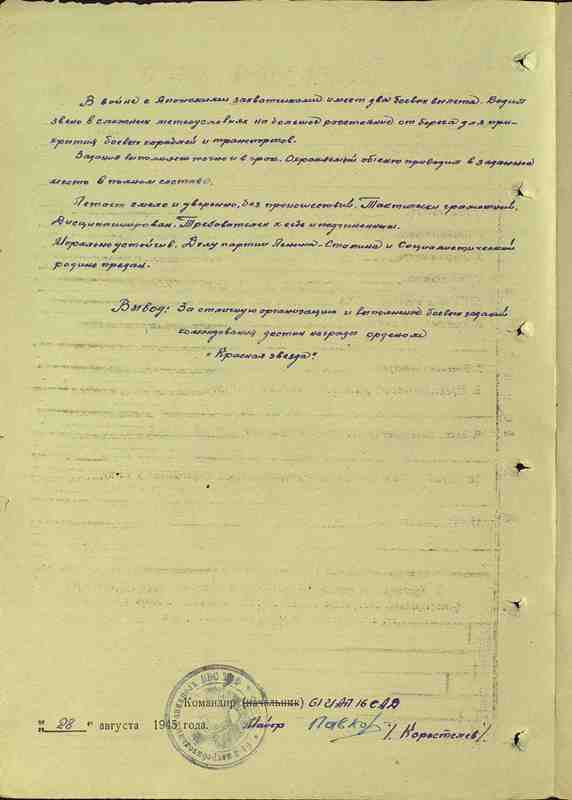 В войне с Японскими захватчиками имеет два боевых вылета. Водил
звено в сложных метеоусловиях на большое расстояние от берега для при-
крытия боевых кораблей и транспортов.
Задания выполняет точно и в срок. Охраняемый объект приводил в заданное
место в полном составе.
Летает смело и уверенно, без происшествий. Тактически грамотный.
Дисциплинирован. Требователен к себе и подчиненным.
Морально устойчив. Делу партии Ленина-Сталина и Социалистической
родине предан.
Вывод: За отличную организацию и выполнение боевых заданий
командования достоин награды орденом
"Красная звезда".
Командир (начальник) 61 ИАП 16 САД
"28" августа 1945 года. Майор Павкор /Коростелев/.